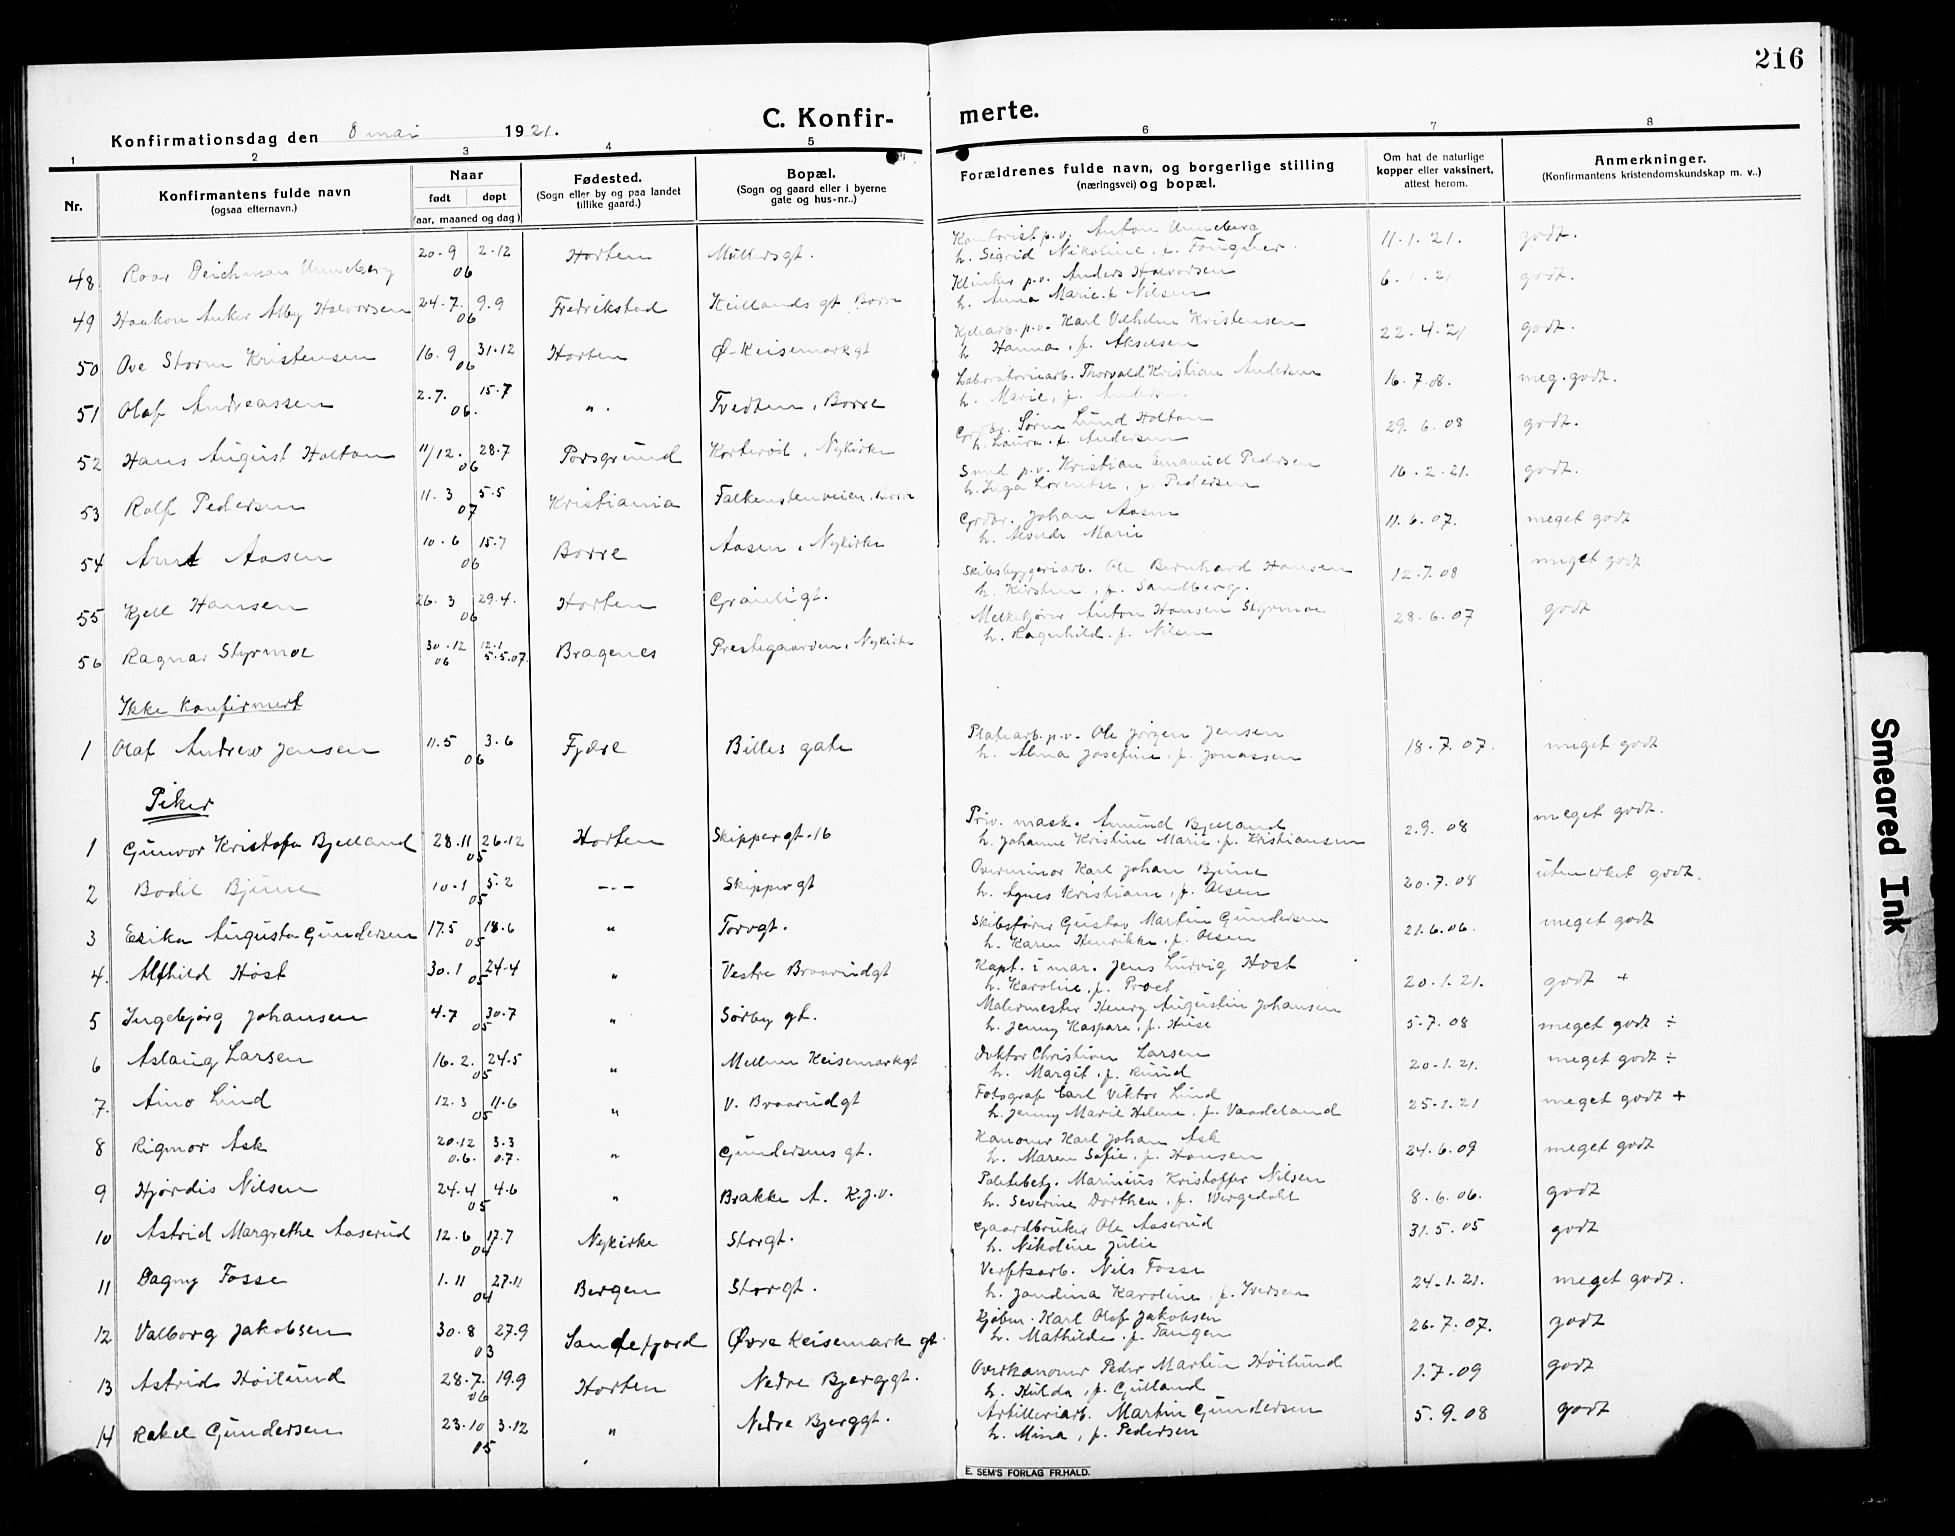 216
C. Konfirmerte.
Konfirmationsdag den 8 mai 1921.
1 2 3 4 5 6 7 8
Nr.
Konfirmantens fulde navn
(ogsaa efternavn.)
Naar
født døpt
(aar, maaned og dag)
Fødested.
(Sogn eller by og paa landet
tillike gaard.)
Bopæl.
(Sogn og gaard eller i byerne
gate og hus-nr..)
Forældrenes fulde navn, og borgerlige stilling
(næringsvei) og bopæl.
Om hat de naturlige
kopper eller vaksinert,
attest herom.
Anmerkninger.
(Konfirmantens kristendomskundskap m. v..)
48 Roar Deichman Unneberg 20.9 06 2.12 Horten Müllersgt. Kontorist p.v. Anton Unneberg
h. Sigrid Nikoline, f. Fougner. 11.1.21. godt.
49 Haakon Anker Alby Halvorsen 24.7. 06 9.9 Fredrikstad Keillands gt Borre Klinker p.v. Anders Halvorsen
h. Anna Marie f. Nilsen 6.1.21 godt.
50 Ove Storm Kristensen 16.9 06 31.12 Horten Ø-Keisemarkgt Kjelearb. p.v. Karl Vilhelm Kristensen
h Hanna, f. Akselsen 22.4.21 godt.
51 Olaf Andreassen 2.7. 06. 15.7 ". Tvedten, Borre Laboratoriearb. Thorvald Kristian Andersen
h. Marie, f. Andersen 16.7.08. meg. godt.
52 Hans August Holtan 11/12. 06 28.7 Porsgrund Korterød, Nykirke Grdbr. Søren Lund Holtan
h. Laura, f. Andersen 29.6.08 godt.
53 Rolf Pedersen 11.3 07 5.5 Kristiania Falkenstenveien, Borre Smed p.v. Kristian Emanuel Pedersen
h. Inga Lorentse, f. Pedersen 16.2.21. godt.
54 Arnt Aasen 10.6 06 15.7 Borre Aasen, Nykirke Grdbr. Johan Aasen
h. Alvilde Marie 11.6.07. meget godt
55 Kjell Hansen 26.3 06 29.4. Horten Grønligt. Skibsbyggeriarb. Ole Bernhard Hansen
h. Kirsten, f. Sandberg. 12.7.08 meget godt
56 Ragnar Styrmoe 30.12 06 12.1 5.5.07. Bragenes Prestegaarden, Nykirke Melkekjører Anton Hansen Styrmoe
h. Ragnhild, f. Nilsen 28.6.07 godt
Ikke konfirmert
1 Olaf Andrew Jensen 11.5 06 3.6 Fjære Billes gate Platearb. p.v. Ole Jørgen Jensen
h. Alma Josefine, f. Jonassen 18.7.07. meget godt
Piker
1 Gunvor Kristofa Bjelland 28.11 05 26.12 Horten Skippergt. 16 Priv. mask. Amund Bjelland
h. Johanne Kristine Marie, f. Kristiansen 2.9.08 meget godt.
2 Bodil Bjune 10.1 05 5.2 -"- Skippergt Overminør Karl Johan Bjune
h. Agnes Kristiane, f. Olsen 20.7.08 utmerket godt.
3 Erika Augusta Gundersen 17.5 05 18.6 " Torvgt. Skibsfører Gustav Martin Gundersen
h. Karen Henrikke, f. Olsen 21.6.06. meget godt
4. Alfhild Høst 30.1 05 24.4 " Vestre Braarudgt Kapt. i mar. Jens Ludvig Høst
h. Karoline, f. Proet 20.1.21. godt +
5 Ingebjørg Johansen 4.7 05 30.7 " Sørby gt. Malermester Henry Augustin Johansen
h. Jenny Kaspara, f. Huse 5.7.08 meget godt ÷
6 Aslaug Larsen 16.2. 05 24.5 " Mellem Keisemarkgt Doktor Christian Larsen
h. Margit, f. Ruud 20.1.21. meget godt ÷
7. Aino Lind 12.3 05 11.6 " V. Braarudgt Fotograf Carl Viktor Lind
h. Jenny Marie Helene, f. Vaadeland 25.1.21 meget godt +
8 Rigmor Ask 20.12 06. 3.3 07. " Gundersens gt. Kanoner Karl Johan Ask
h. Maren Sofie, f. Hansen 24.6.09 meget godt
9 Hjørdis Nilsen 24.4 05 4.6 " Brakke A. K.J.V. Politibetj. Marinius Kristoffer Nilsen
h. Severine Dorthea, f. Wergedahl 8.6.06. godt
10 Astrid Margrethe Aaserud 12.6 04 17.7 Nykirke Storgt. Gaardbruker Ole Aaserud
h. Nikoline Julie 31.5.05 godt
11 Dagny Fosse 1.11 04 27.11 Bergen Storgt. Verftsarb. Nils Fosse
h. Jandina Karoline, f. Iversen 24.1.21. meget godt.
12 Valborg Jakobsen 30.8 03 27.9 Sandefjord Øvre Keisemark gt. Kjøbm. Karl Olaf Jakobsen
h. Mathilde, f. Tangen 26.7.07. godt
13 Astrid Höilund 28.7. 06 19.9 Horten Nedre Bjerggt. Overkanoner Peder Martin Höilund
h. Hulda, f. Gulland 1.7.09 godt
14 Rakel Gundersen 23.10 05 3.12 " Nedre Bjerggt. Artilleriarb. Martin Gundersen
h. Mina, f. Pedersen 5.9.08 godt
E. SEM'S FORLAG FR.HALD.
Smeared Ink